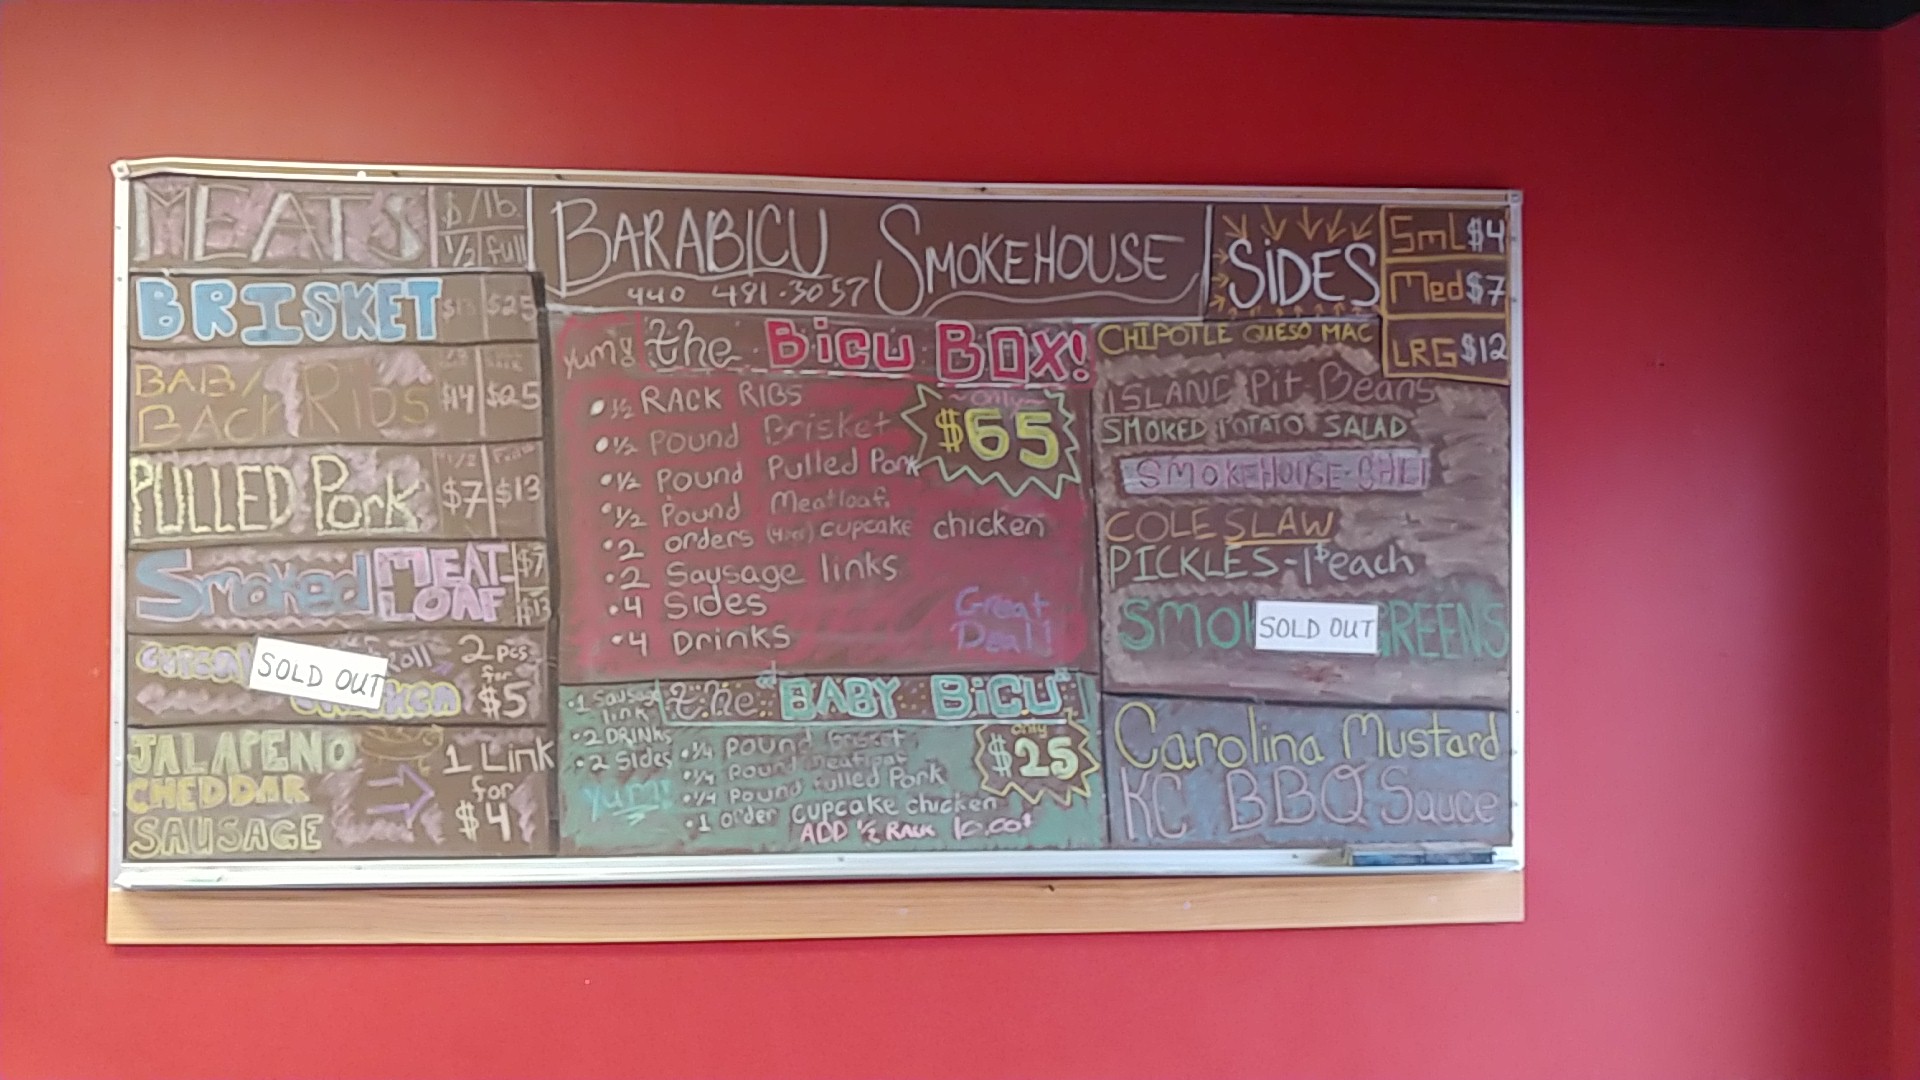 MEATS
$/lb
1/2 full
BRISKET $13 $25
BABY
BACK RIBS $14 $25
PULLED Pork 1/2 $7 $13
Smoked MEAT LOAF $7 $13
SOLD OUT
Roll
2 pcs for $5
JALAPENO
CHEDDAR
SAUSAGE
1 Link
for
$4
BARABICU SMOKEHOUSE
440 481-3057
Yum! the Bicu BOX!
~Only~
$65
• 1/2 RACK RIBS
• 1/2 Pound Brisket
• 1/2 Pound Pulled Pork
• 1/2 Pound Meatloaf
• 2 orders (4pcs) cupcake chicken
• 2 Sausage links
• 4 Sides
• 4 Drinks
Great
Deal!
the "BABY BiCU"
only
$25
• 1 Sausage
link
• 2 DRINKS
• 2 Sides
Yum!
• 1/4 pound Brisket
• 1/4 Pound Meatloaf
• 1/4 Pound Pulled Pork
• 1 order cupcake chicken
ADD 1/2 Rack 10.00$
SIDES
SmL $4
Med $7
LRG $12
CHIPOTLE QUESO MAC
ISLAND Pit Beans
SMOKED POTATO SALAD
SMOKEHOUSE CHILI
COLE SLAW
PICKLES - 1$ each
SMO SOLD OUT GREENS
Carolina Mustard
KC BBQ Sauce